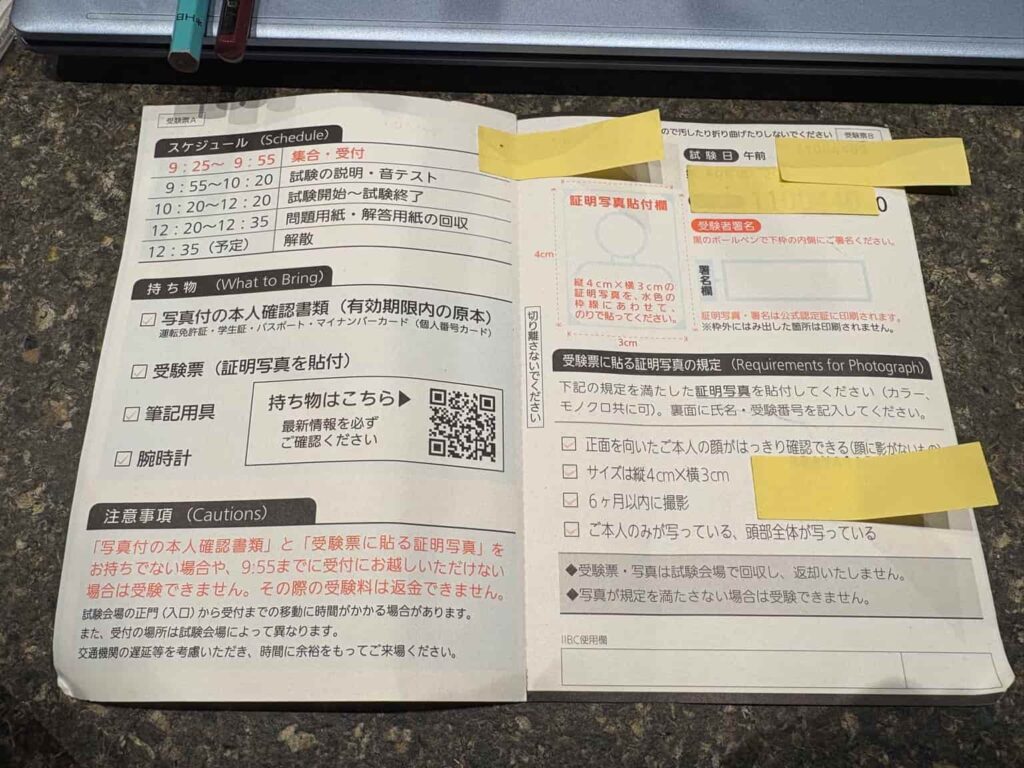 受験票A
スケジュール (Schedule)
9：25～ 9：55 集合・受付
9：55～10：20 試験の説明・音テスト
10：20～12：20 試験開始～試験終了
12：20～12：35 問題用紙・解答用紙の回収
12：35（予定） 解散
持ち物 (What to Bring)
写真付の本人確認書類（有効期限内の原本）
運転免許証・学生証・パスポート・マイナンバーカード（個人番号カード）
受験票（証明写真を貼付）
筆記用具
腕時計
持ち物はこちら▶
最新情報を必ず
ご確認ください
注意事項 (Cautions)
「写真付の本人確認書類」と「受験票に貼る証明写真」を
お持ちでない場合や、9:55までに受付にお越しいただけない
場合は受験できません。その際の受験料は返金できません。
試験会場の正門（入口）から受付までの移動に時間がかかる場合があります。
また、受付の場所は試験会場によって異なります。
交通機関の遅延等を考慮いただき、時間に余裕をもってご来場ください。
切り離さないでください
ので汚したり折り曲げたりしないでください 受験票B
試験日 午前
0
証明写真貼付欄
4cm
縦4cm×横3cmの
証明写真を、水色の
枠線にあわせて、
のりで貼ってください。
3cm
受験者署名
黒のボールペンで下枠の内側にご署名ください。
署名欄
証明写真・署名は公式認定証に印刷されます。
※枠外にはみ出した箇所は印刷されません。
受験票に貼る証明写真の規定 (Requirements for Photograph)
下記の規定を満たした証明写真を貼付してください（カラー、
モノクロ共に可）。裏面に氏名・受験番号を記入してください。
正面を向いたご本人の顔がはっきり確認できる（顔に影がないもの）
サイズは縦4cm×横3cm
6ヶ月以内に撮影
ご本人のみが写っている、頭部全体が写っている
◆受験票・写真は試験会場で回収し、返却いたしません。
◆写真が規定を満たさない場合は受験できません。
IIBC使用欄